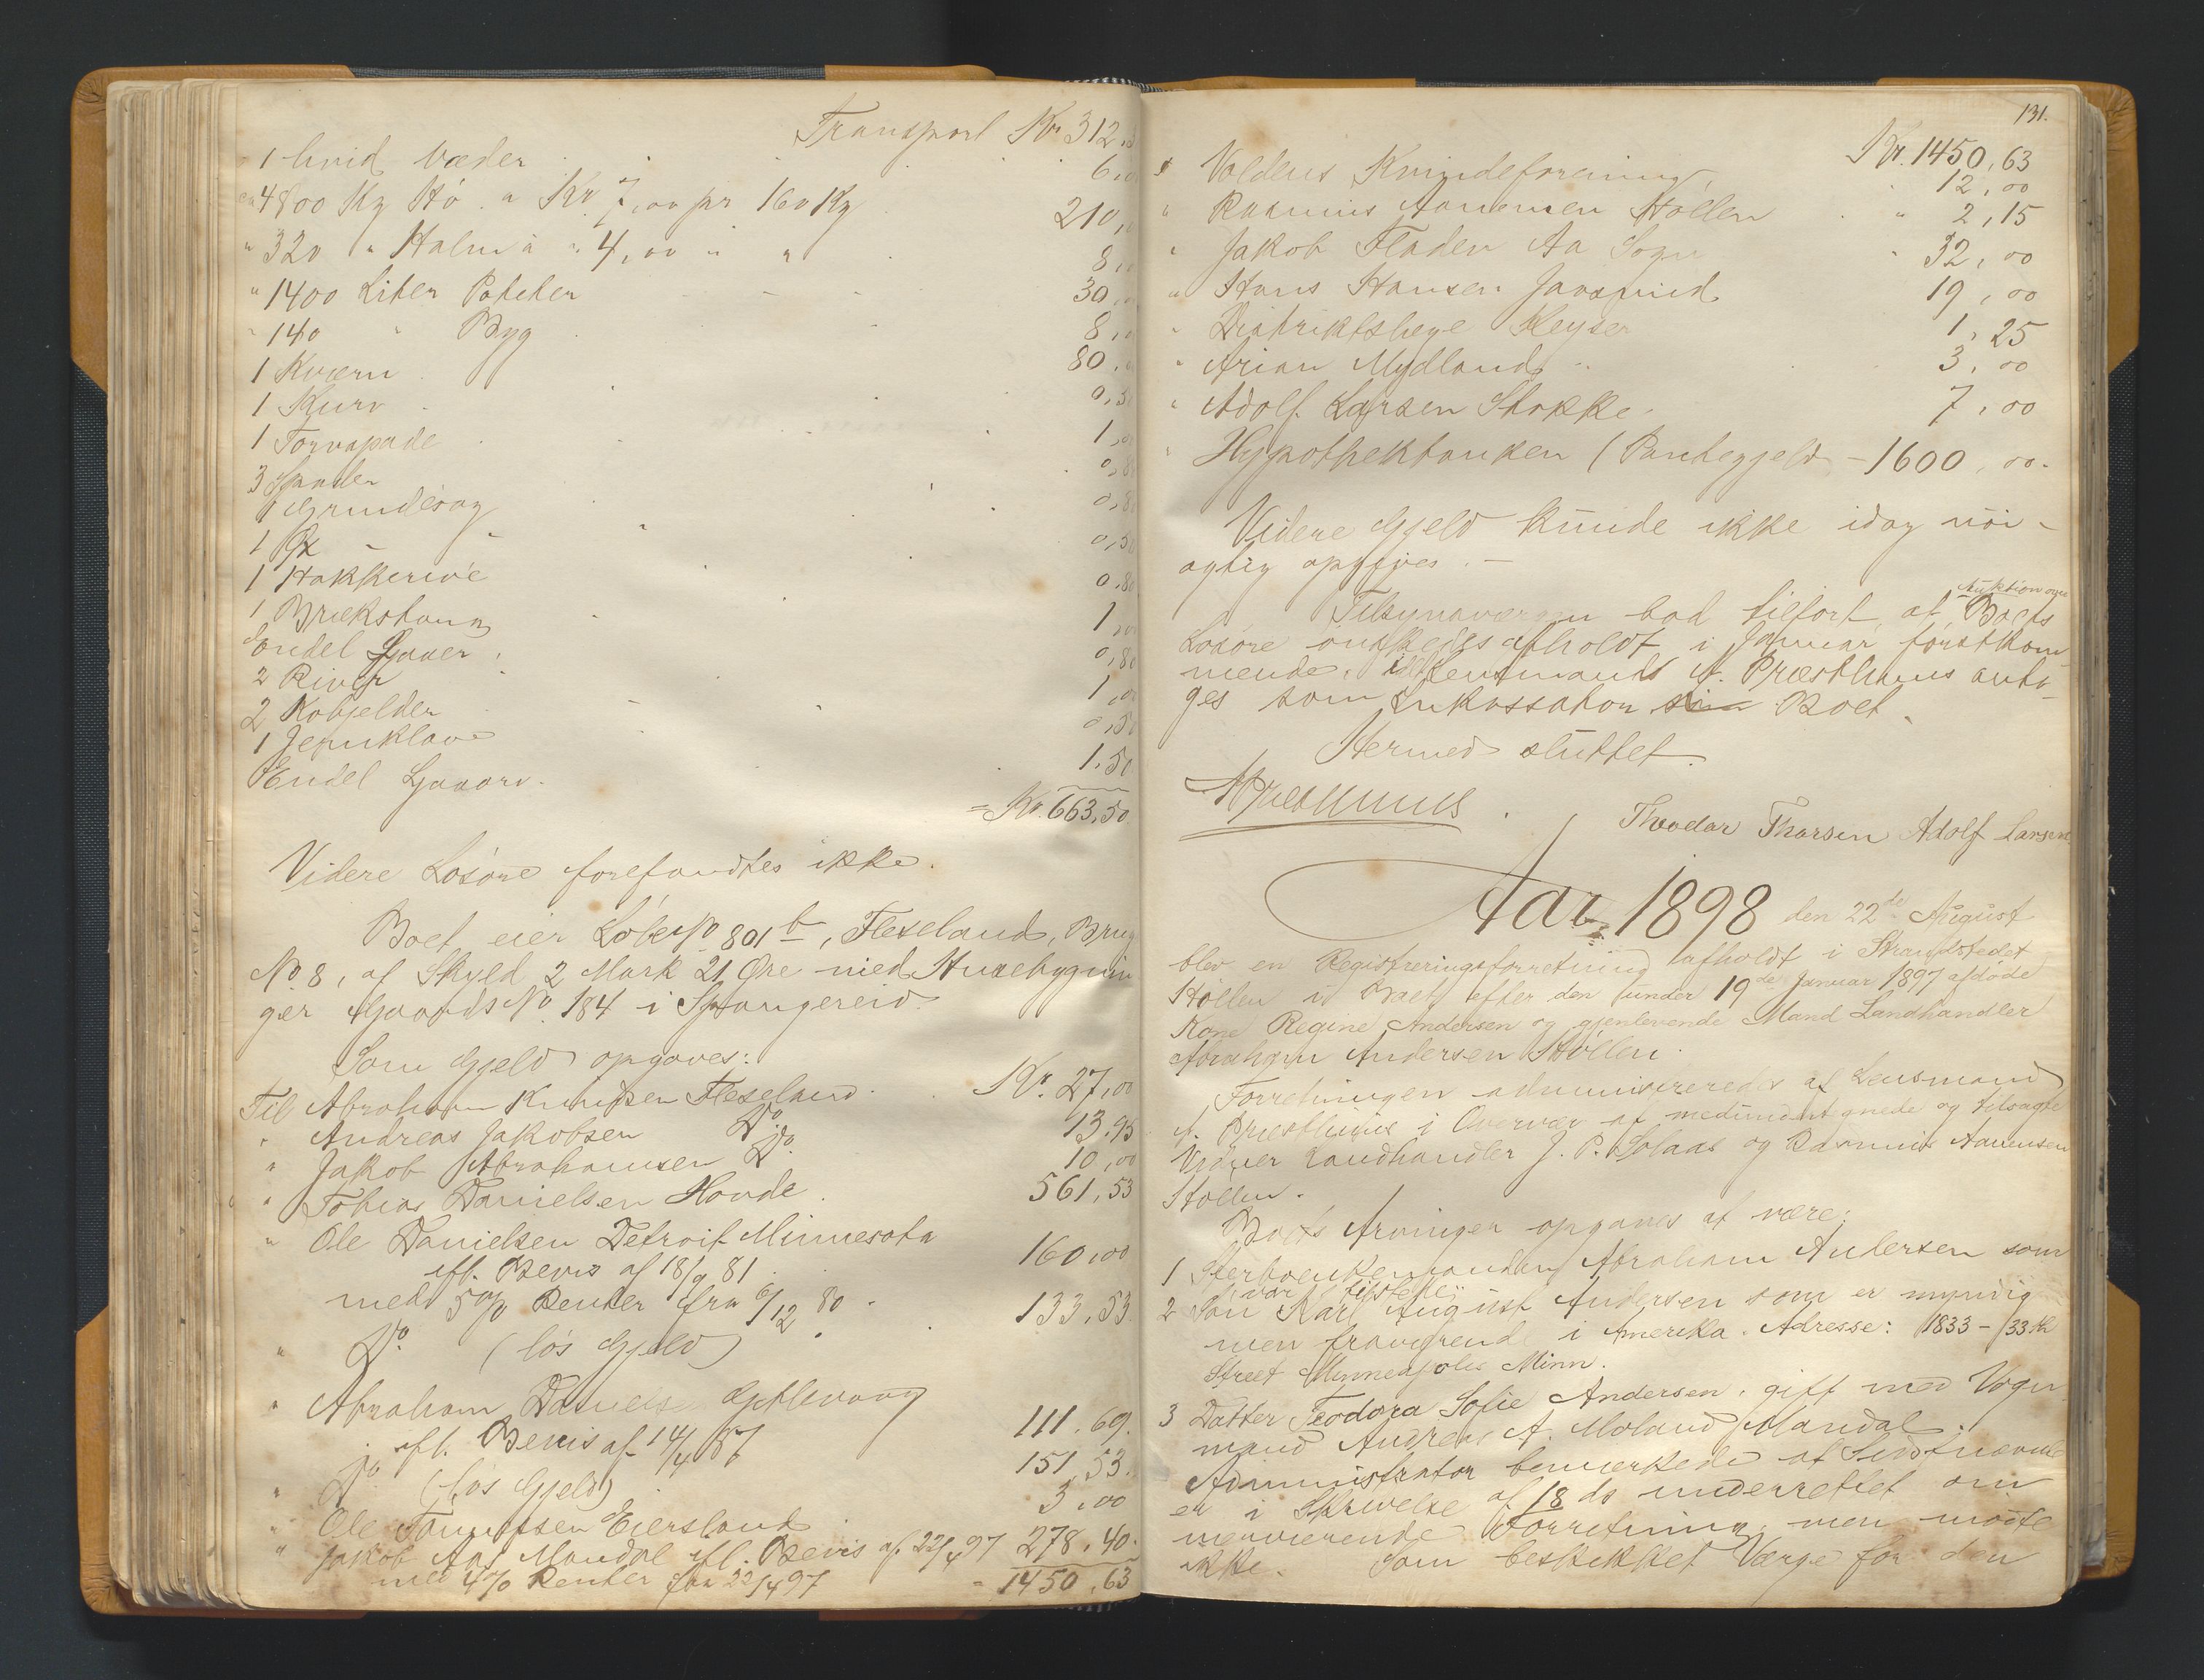 Transport Kr 312,
1 hvid Væder 6,
ca 4800 Kg Hø a Kr 7,00 pr 160 Kg 210,
" 320 " Halm a " 4,00 " " 8,
" 1400 Liter Poteter 30
" 140 " Byg 8,
1 Kværn 80,
1 Kurv 0,50
1 Torvspade 1,00
3 Spader 0,80
1 Grindesag 0,80
1 Øx 0,50
1 Hakkerive 0,80
1 Brækstang 1,00
Endel 0,80
2 River 1,00
2 Kobjelder 0,50
1 Jernklave 1.50
Endel
= Kr. 663,50
Videre Løsøre forefandtes ikke.
Boet eier Løbe No 801 b, Fleseland, Brug
No. 8, af Skyld 2 Mark 21 Øre med Husebygnin
ger Gaards No. 184 i Spangereid
Som Gjeld opgaves:
Til Abraham Knudsen Fleseland Kr. 27,00
" Andreas Jakobsen Do. 13.95
" Jakob Abrahamsen Do. 10,00
" Tobias Danielsen Hovde 561,53
" Ole Danielsen Detroit Minnesota
ifl. Bevis af 18/9 81 160,00
med 5 o/o Renter fra 6/12 80
" Do. (løs Gjeld) 133,53
" Abraham Daniels
ifl. Bevis af 14/4 87 111.69.
" Do (løs Gjeld) 151,53.
" Ole Tønnessen Eiersland 3,00
" Jakob Mandal ifl. Bevis af 22/4 97 278,40.
med 4 % Renter fra 22/4 97 = 1450,63
131.
Kr. 1450,63
" Valdens Kvindeforening 12,00
" Rasmus Aanensen Høllen " 2,15
" Jakob Fladen Aa Sogn " 32,00
" Hans Hansen 19,00
" Distriktslæge Keyser 1,25
" Arian Mydland 3,00
" Adolf Larsen Stokke 7,00
" Hypothekbanken (Pantegjeld - 1600,00.
Videre Gjeld kunde ikke idag nøi-
agtig opgives. -
Tilsynsværgen bad tilført, at Auktion over Boets
Løsøre ønskedes afholdt i Januar førstkom
mende, Lensmand A. Præsthuus anta-
ges som Inkassator Boet.
Hermed sluttet.
APræsthuus
Theodor Thorsen Adolf Larsen
Aar 1898 den 22de August
blev en Registreringsforretning afholdt i Strandstedet
Høllen i Boet efter den under 19de Januar 1897 afdøde
Kone Regine Andersen og gjenlevende Mand Landhandler
Abraham Andersen Høllen.
Forretningen administreredes af Lensmand
A. Præsthuus i Overvær af medundertegnede og tilsagte
Vidner Landhandler J. P. Solaas og Rasmus Aanensen
Høllen.
Boets Arvinger opgaves at være:
1 Sterboenkemanden Abraham Andersen som
var tilstede;
2 Søn Karl August Andersen som er myndig
men fraværende i Amerika. Adresse: 1833 - 33th
Street Minneapolis Minn.
3 Datter Teodora Sofie Andersen, gift med Vogn
mand Andreas A. Moland Mandal.
Administrator bemærkede at Sidstnævnte
er i Skrivelse af 18 ds underrettet om
nærværende Forretning, men mødte
ikke. Som beskikket Værge for den